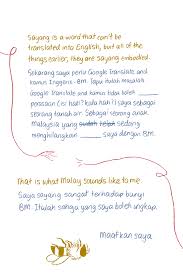 Sayang is a word that can't be
translated into English, but all of the
things earlier, they are sayang embodied.
Sekarang saya perlu Google Translate and
kamus Inggeris-BM. Tapi itulah masalah
Google Translate and kamus tidak boleh
perasaan (isi hati? kata hati?) saya sebagai
seorang tanah air. Sebagai seorang anak
malaysia yang sudah telah sedang
menghilangkan saya dengan BM.
That is what Malay sounds like to me.
Saya sayang sangat terhadap bunyi
BM. Itulah sahaja yang saya boleh ungkap.
maafkan saya